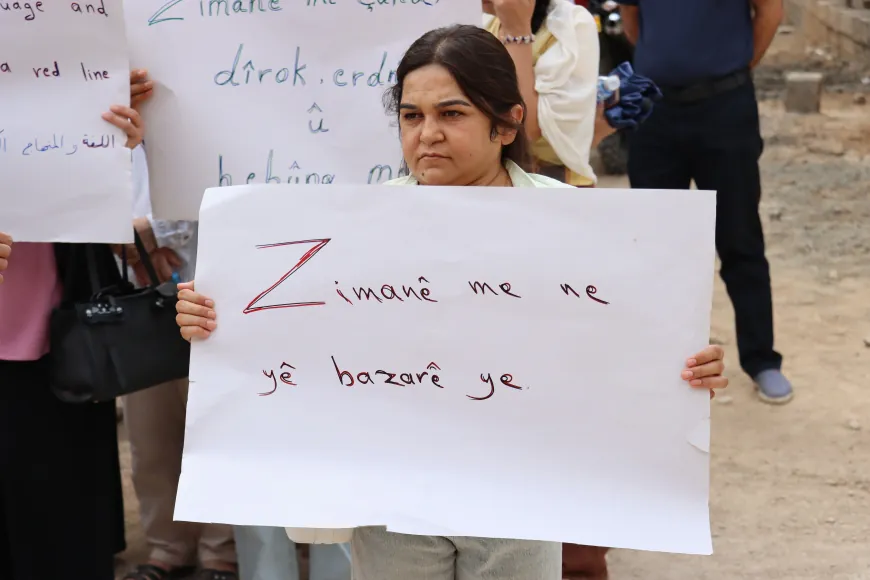 uage and
a red line
اللغة والمنهاج
Zimanê me
dîrok, erd
û
hebûna m
Zimanê me ne
yê bazarê ye.